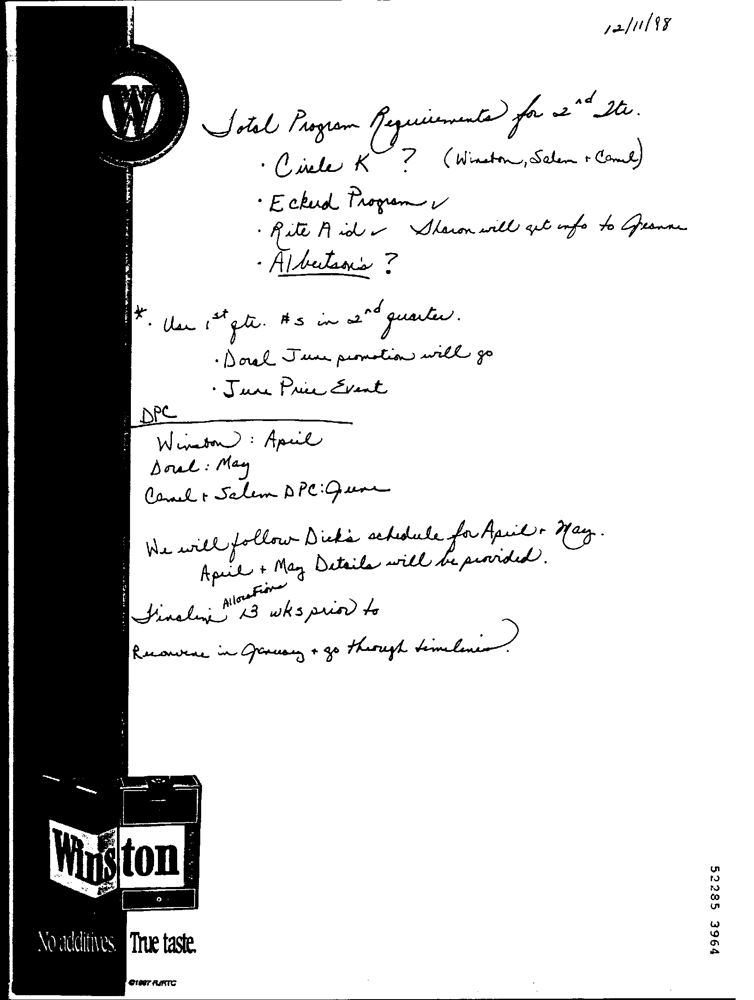 12/11/98
W
Total Program Requirements for 2nd Qtr.
· Circle K ? (Winston, Salem + Camel)
· Eckerd Program ✓
· Rite Aid ✓ Sharon will get info to Jeanne
· Albertson's ?
* · Use 1st qtr. #s in 2nd quarter.
· Doral June promotion will go
· June Price Event
DPC
Winston : April
Doral : May
Camel + Salem DPC: June
We will follow Dick's schedule for April + May.
April + May Details will be provided.
Allocations
Finalize 13 wks prior to
Reconvene in January + go through timelines.
Winston
No additives. True taste.
©1997 RJRTC
52285 3964